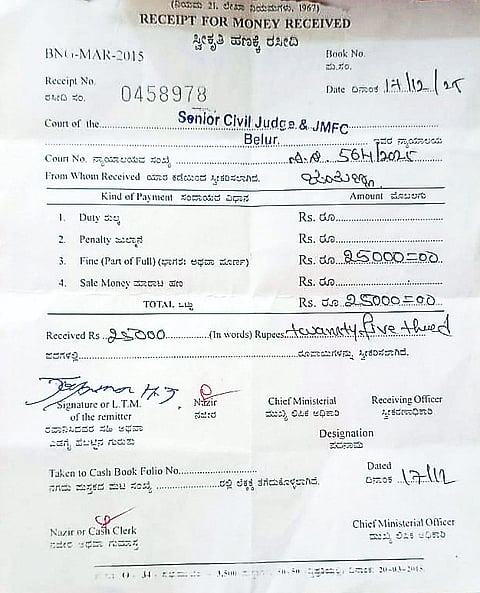 (ನಿಯಮ 21, ಲೇಖಾ ನಿಯಮಗಳು, 1967)
RECEIPT FOR MONEY RECEIVED
ಸ್ವೀಕೃತಿ ಹಣಕ್ಕೆ ರಸೀದಿ
BNG-MAR-2015 Book No.
ಪು.ಸಂ.
Receipt No. 0458978 Date ದಿನಾಂಕ 17/12/25
ರಸೀದಿ ಸಂ.
Court of the Senior Civil Judge & JMFC
Belur. ಇವರ ನ್ಯಾಯಾಲಯ
Court No. ನ್ಯಾಯಾಲಯದ ಸಂಖ್ಯೆ 564/2025
From Whom Received ಯಾರ ಕಡೆಯಿಂದ ಸ್ವೀಕರಿಸಲಾಗಿದೆ.
Kind of Payment ಸಂದಾಯದ ವಿಧಾನ Amount ಮೊಬಲಗು
1. Duty ಶುಲ್ಕ Rs. ರೂ
2. Penalty ಜುಲ್ಮಾನೆ Rs. ರೂ
3. Fine (Part of Full) (ಭಾಗಶಃ ಅಥವಾ ಪೂರ್ಣ) Rs. ರೂ 25000=00
4. Sale Money ಮಾರಾಟ ಹಣ Rs. ರೂ
TOTAL ಒಟ್ಟು Rs. ರೂ 25000=00
Received Rs 25000 (In words) Rupees five
ಪದಗಳಲ್ಲಿ ರೂಪಾಯಿಗಳನ್ನು ಸ್ವೀಕರಿಸಲಾಗಿದೆ.
Signature or L.T.M. Nazir Chief Ministerial Receiving Officer
of the remitter ನಜೀರ ಮುಖ್ಯ ಲಿಪಿಕ ಅಧಿಕಾರಿ ಸ್ವೀಕರಣಾಧಿಕಾರಿ
ರವಾನಿಸಿದವರ ಸಹಿ ಅಥವಾ Designation
ಎಡಗೈ ಹೆಬ್ಬೆಟ್ಟಿನ ಗುರುತು ಪದನಾಮ
Taken to Cash Book Folio No. Dated
ನಗದು ಪುಸ್ತಕದ ಪುಟ ಸಂಖ್ಯೆ ರಲ್ಲಿ ಲೆಕ್ಕಕ್ಕೆ ತೆಗೆದುಕೊಳ್ಳಲಾಗಿದೆ. ದಿನಾಂಕ 17/12
Nazir or Cash Clerk Chief Ministerial Officer
ನಜೀರ ಅಥವಾ ಗುಮಾಸ್ತ ಮುಖ್ಯ ಲಿಪಿಕ ಅಧಿಕಾರಿ
O - 34 - 3,500 50-50 ದಿನಾಂಕ: 20-03-2015.